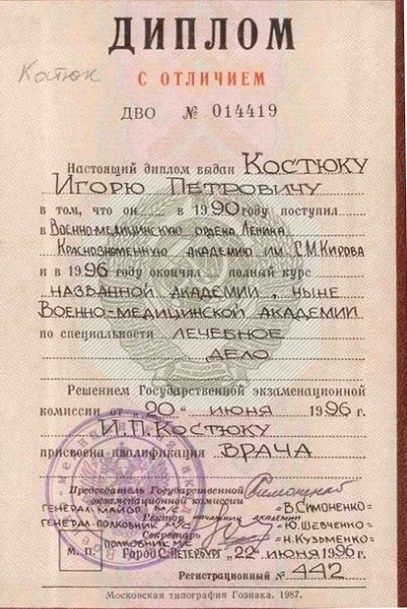 ДИПЛОМ
С ОТЛИЧИЕМ
ДВО № 014419
Настоящий диплом выдан КОСТЮКУ
ИГОРЮ ПЕТРОВИЧУ
в том, что он в 1990 году поступил
в ВОЕННО-МЕДИЦИНСКУЮ ОРДЕНА ЛЕНИНА
КРАСНОЗНАМЕННУЮ АКАДЕМИЮ ИМ. С.М.КИРОВА
и в 1996 году окончил полный курс
НАЗВАННОЙ АКАДЕМИИ, НЫНЕ
ВОЕННО-МЕДИЦИНСКОЙ АКАДЕМИИ
по специальности ЛЕЧЕБНОЕ
ДЕЛО
Решением Государственной экзаменационной
комиссии от „20“ ИЮНЯ 1996 г.
И.П.КОСТЮКУ
присвоена квалификация ВРАЧА
Председатель Государственной
экзаменационной комиссии
ГЕНЕРАЛ-МАЙОР М/С В.СИМОНЕНКО
Ректор НАЧАЛЬНИК АКАДЕМИИ
ГЕНЕРАЛ-ПОЛКОВНИК М/С Ю.ШЕВЧЕНКО
ПОЛКОВНИК М/С Н.КУЗЬМЕНКО
М. П. Город С.ПЕТЕРБУРГ „22“ ИЮНЯ 1996 г.
Регистрационный № 442
Московская типография Гознака. 1987.